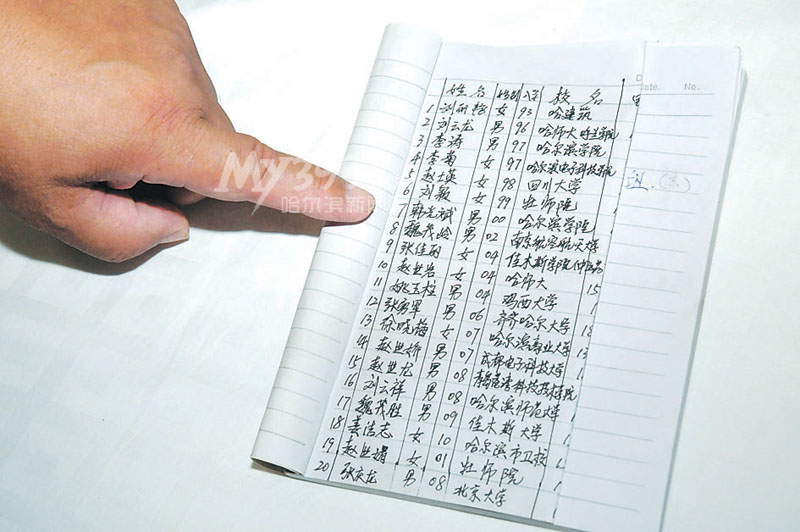 Date. No.
姓名 性别 入学 校名
1 刘丽 女 93 哈建筑
2 刘云龙 男 96 哈师大呼兰学院
3 李涛 男 97 哈尔滨学院
4 李菊 女 97 哈尔滨电子科技学院
5 赵士英 女 98 四川大学
6 刘颖 女 99 牡师院
7 韩 男 00 哈尔滨学院
8 魏茂岭 男 02 南京航空航天大学
9 张佳丽 女 04 佳木斯学院
10 赵世岩 女 04 哈师大 15
11 姚玉柱 男 04 鸡西大学
12 张勇军 男 06 齐齐哈尔大学 18
13 徐晓梅 女 07 哈尔滨商业大学 13
14 赵世娇 男 07 成都电子科技大学
15 赵世龙 男 08
16 刘云祥 男 08 哈尔滨师范大学
17 魏茂胜 男 09 佳木斯大学
18 姜浩志 女 10 哈尔滨市卫校
19 赵世 女 01 牡师院
20 张庆龙 男 08 北京大学
My39
哈尔滨新